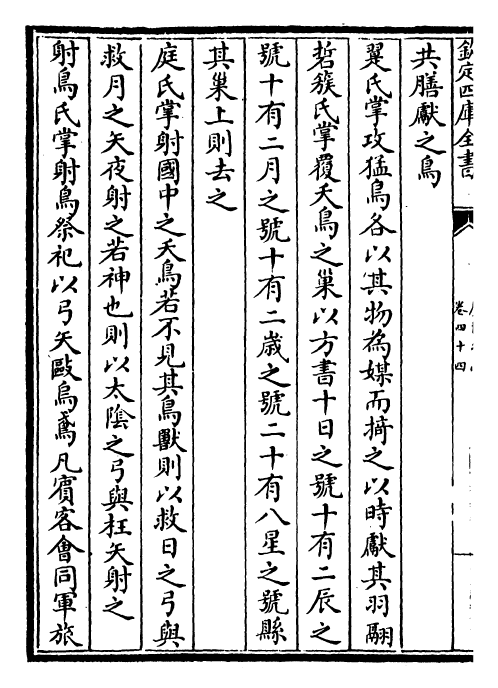 欽定四庫全書
卷四十四
共膳獻之鳥
翨氏掌攻猛鳥各以其物為媒而掎之以時獻其羽翮
硩蔟氏掌覆夭鳥之巢以方書十日之號十有二辰之
號十有二月之號十有二歳之號二十有八星之號縣
其巢上則去之
庭氏掌射國中之夭鳥若不見其鳥獸則以救日之弓與
救月之矢夜射之若神也則以太陰之弓與枉矢射之
射鳥氏掌射鳥祭祀以弓矢敺烏鳶凡賓客會同軍旅